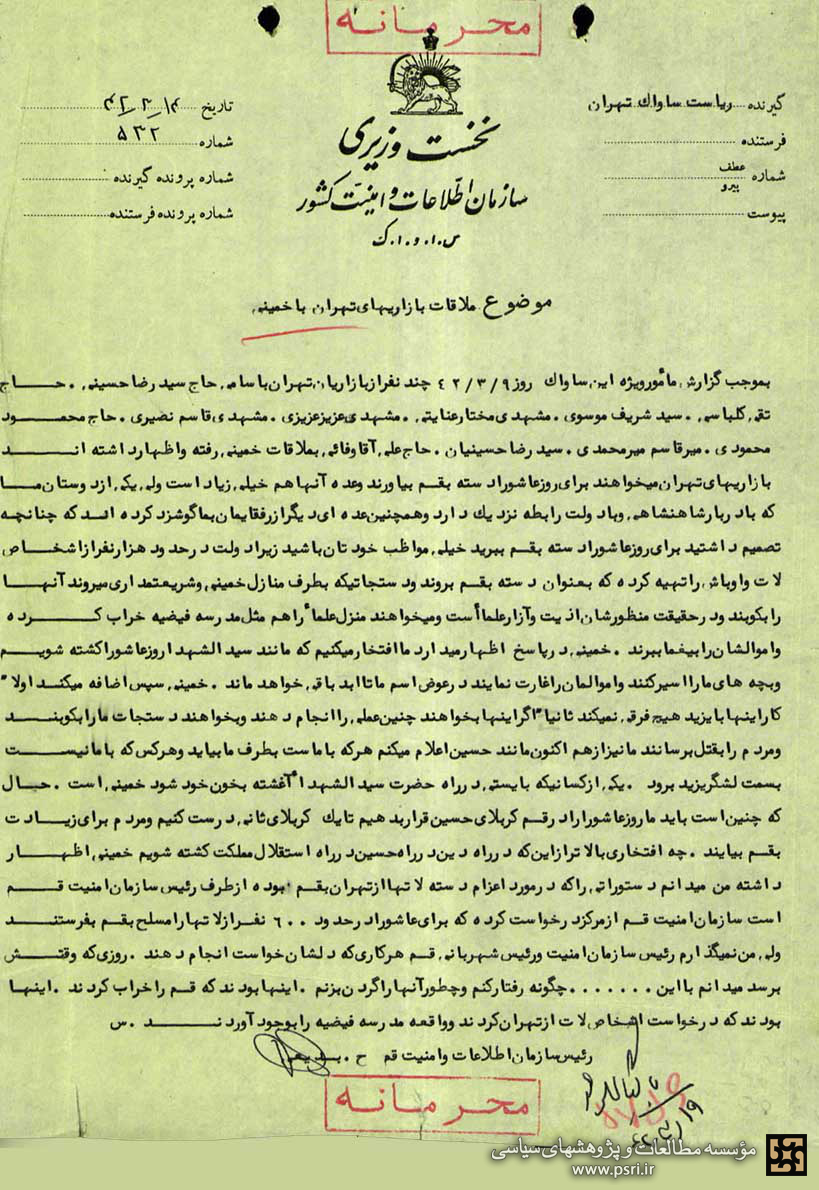 محرمانه
گیرنده ریاست ساواک تهران
فرستنده
شماره عطف
پیرو
پیوست
نخست وزیری
سازمان اطلاعات و امنیت کشور
س.ا.و.ا.ک
تاریخ
شماره ۵۳۲
شماره پرونده گیرنده
شماره پرونده فرستنده
موضوع ملاقات بازاریهای تهران با خمینی
بموجب گزارش مأمور ویژه این ساواک روز ۴۲/۳/۹ چند نفر از بازاریان تهران باسامی حاج سید رضا حسینی . حاج
تقی کلباسی . سید شریف موسوی . مشهدی مختار عنایتی . مشهدی عزیز عزیزی . مشهدی قاسم نصیری . حاج محمود
محمودی . میرقاسم میرمحمدی . سید رضا حسینیان . حاج علی آقا وفائی بملاقات خمینی رفته و اظهار داشته اند
بازاریهای تهران میخواهند برای روز عاشورا دسته بقم بیاورند وعده آنها هم خیلی زیاد است ولی یکی از دوستان ما
که با دربار شاهنشاهی و با دولت رابطه نزدیک دارد وهمچنین عده ای دیگر از رفقایمان بما گوشزد کرده اند که چنانچه
تصمیم داشتید برای روز عاشورا دسته بقم ببرید خیلی مواظب خودتان باشید زیرا دولت در حدود هزار نفر از اشخاص
لات و اوباش را تهیه کرده که بعنوان دسته بقم بروند ودستجاتیکه بطرف منازل خمینی وشریعتمداری میروند آنها
را بکوبند ودر حقیقت منظورشان اذیت و آزار علما أست ومیخواهند منزل علما را هم مثل مدرسه فیضیه خراب کرده
واموالشان را بیغما ببرند . خمینی در پاسخ اظهار میدارد ما افتخار میکنیم که مانند سید الشهدا روز عاشورا کشته شویم
وبچه های ما را اسیر کنند و اموالمان را غارت نمایند در عوض اسم ما تا ابد باقی خواهد ماند . خمینی سپس اضافه میکند اولا"
کار اینها با یزید هیچ فرقی نمیکند ثانیا" اگر اینها بخواهند چنین عملی را انجام دهند وبخواهند دستجات ما را بکوبند
ومردم را بقتل برسانند ما نیز از هم اکنون مانند حسین اعلام میکنم هرکه با ماست بطرف ما بیاید وهرکس که با ما نیست
بسمت لشگر یزید برود . یکی از کسانیکه بایستی در راه حضرت سید الشهدا آغشته بخون خود شود خمینی است . حال
که چنین است باید ما روز عاشورا را در قم کربلای حسین قرار بدهیم تا یک کربلای ثانی درست کنیم ومردم برای زیارت
بقم بیایند . چه افتخاری بالاتر از این که در راه دین در راه حسین در راه استقلال مملکت کشته شویم خمینی اظهار
داشته من میدانم دستوراتی را که در مورد اعزام دسته لاتها از تهران بقم بوده از طرف رئیس سازمان امنیت قم
است سازمان امنیت قم از مرکز درخواست کرده که برای عاشورا در حدود ۶۰۰ نفر از لاتها را مسلح بقم بفرستند
ولی من نمیگذارم رئیس سازمان امنیت ورئیس شهربانی قم هرکاری که دلشان خواست انجام دهند . روزی که وقتش
برسد میدانم با این ....... چگونه رفتار کنم وچطور آنها را گردن بزنم . اینها بودند که قم را خراب کردند . اینها
بودند که درخواست اشخاص لات از تهران کردند وواقعه مدرسه فیضیه را بوجود آوردند . س
رئیس سازمان اطلاعات و امنیت قم ح . بدیعی
محرمانه
مؤسسه مطالعات و پژوهشهای سیاسی
www.psri.ir